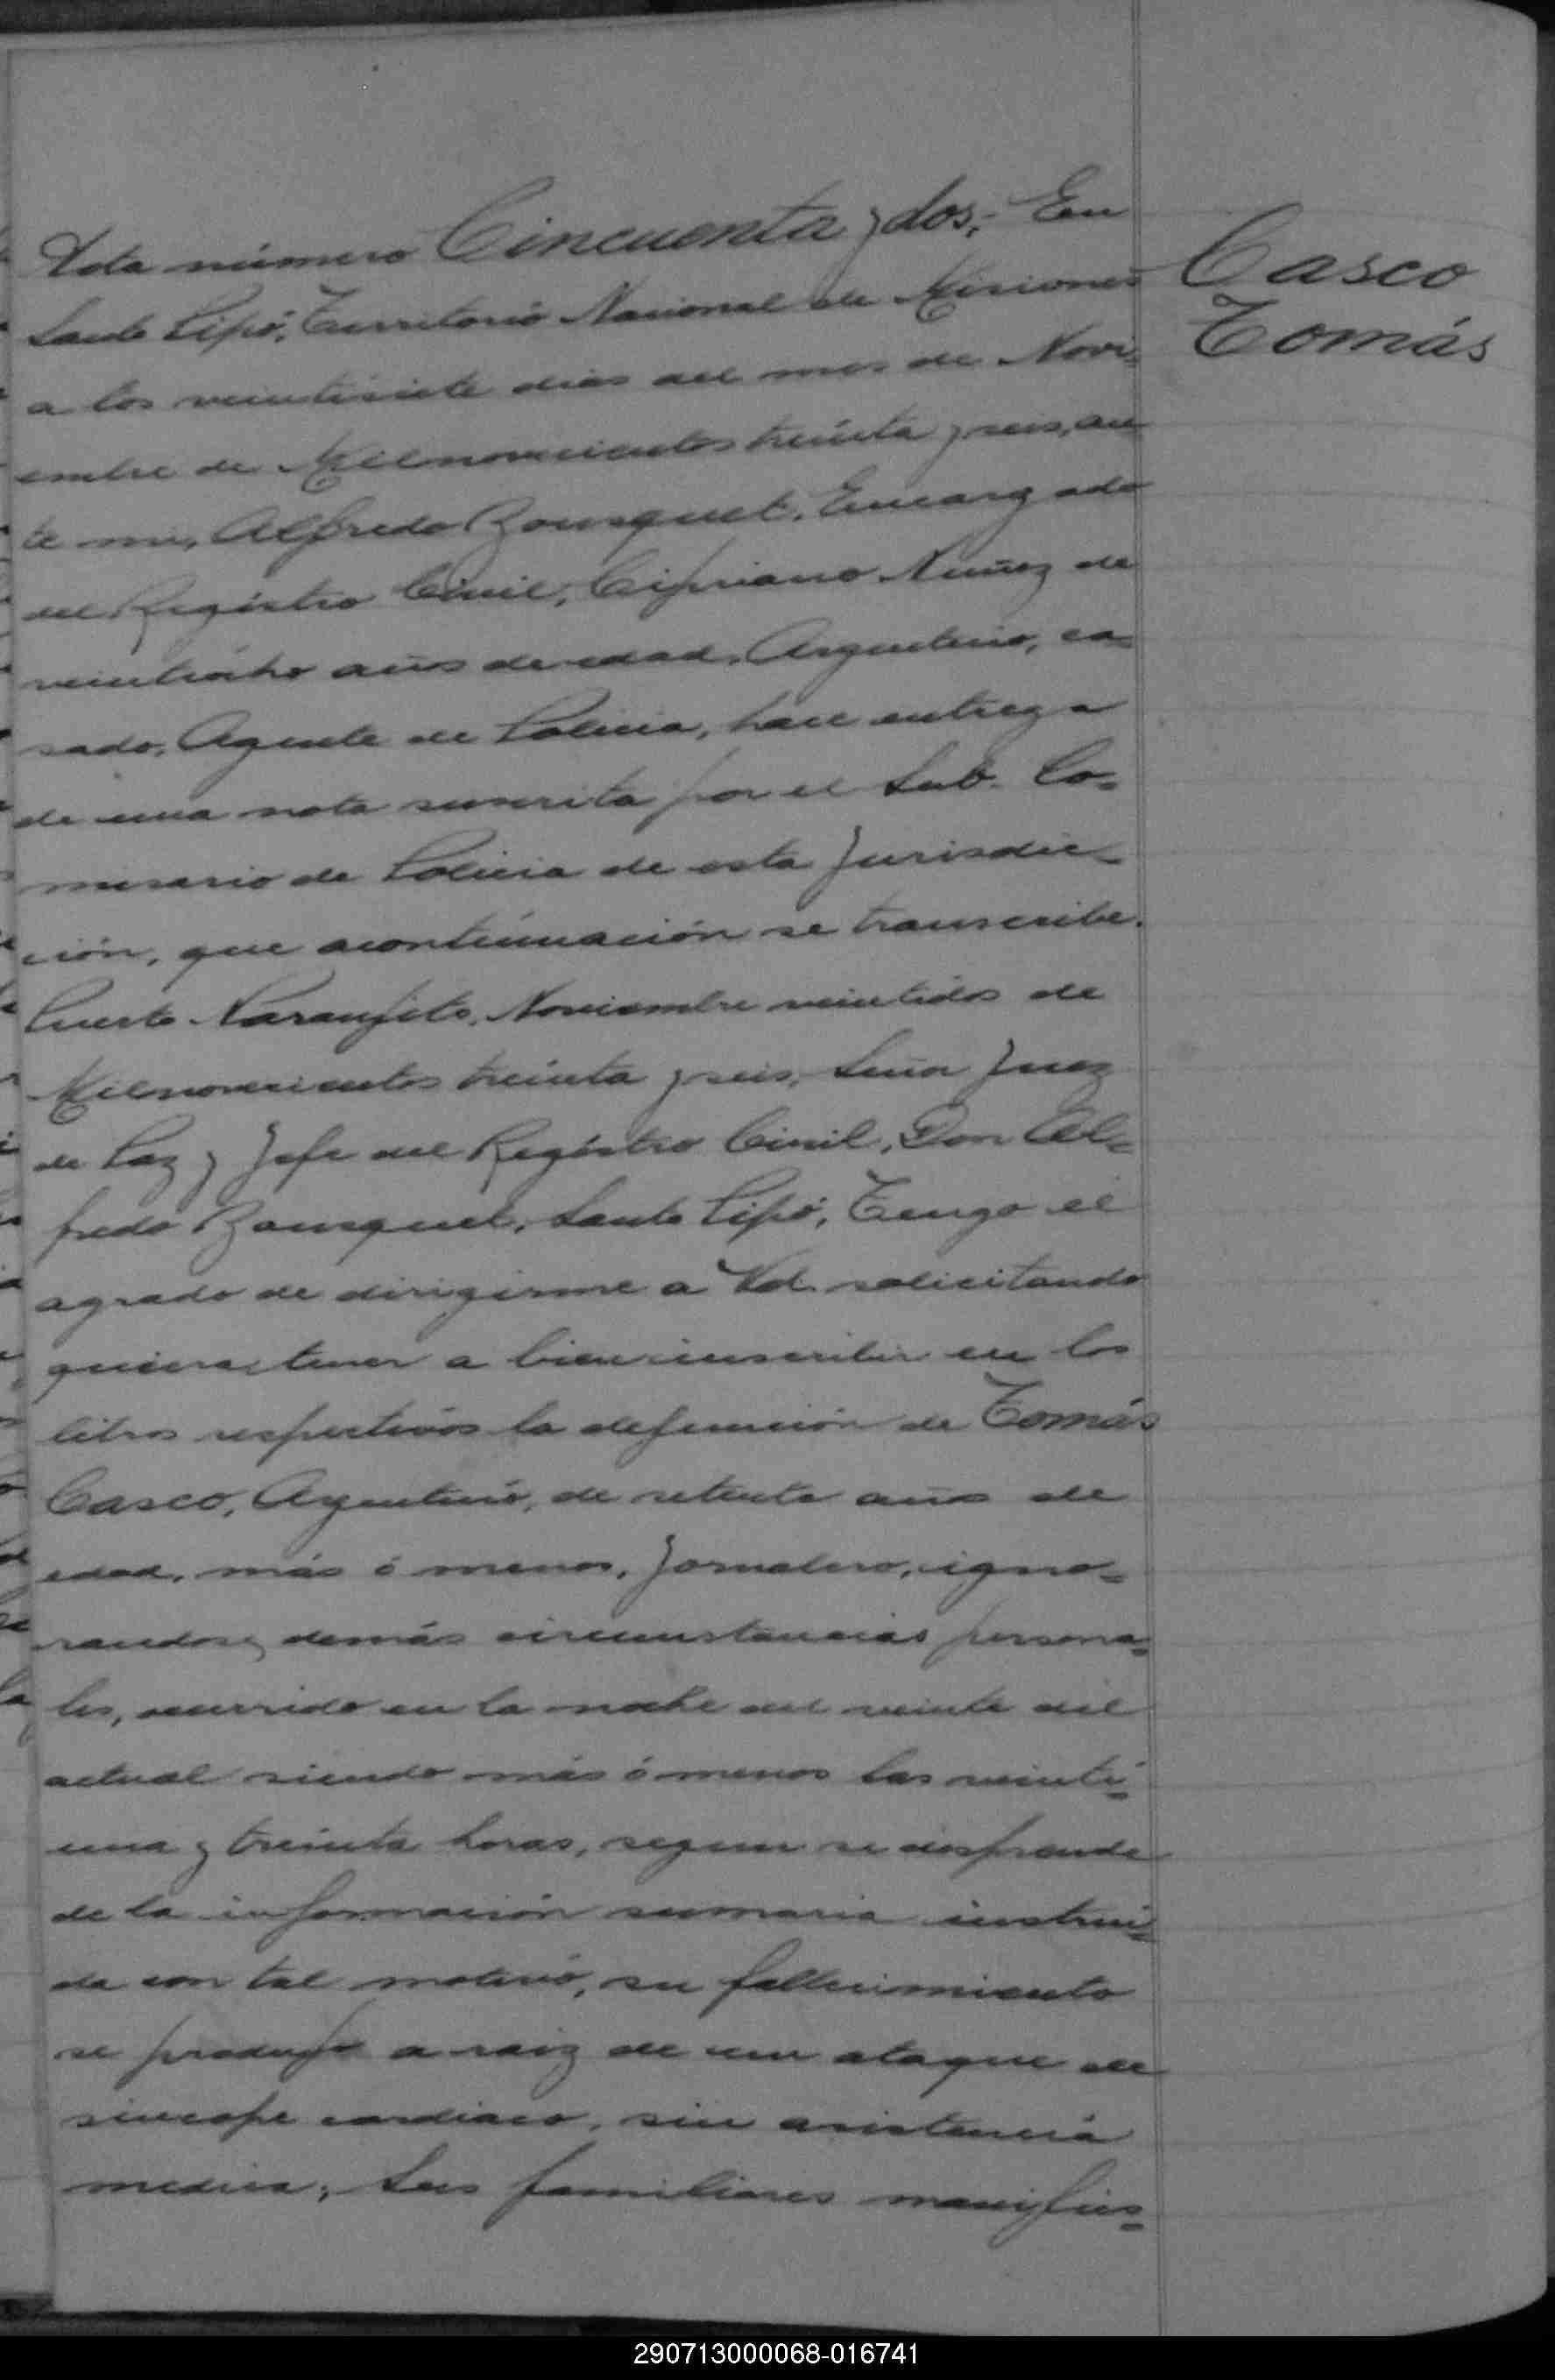 Acta número Cincuenta y dos, En
Santo Pipó, Territorio Nacional de Misiones
a los veintisiete dias del mes de Novi-
embre de Milnovecientos treinta y seis, an
te mi, Alfredo Bousquet, Encargado
del Registro Civil, Cipriano Nuñez de
veintiocho años de edad, Argentino, ca-
sado, Agente de Policia, hace entrega
de una nota suscrita por el Sub. Co-
misario de Policia de esta Jurisdic-
ción, que acontinuación se transcribe.
Puerto Naranjito, Noviembre veintidos de
Milnovecientos treinta y seis, Señor Juez
de Paz y Jefe del Registro Civil, Don Al-
fredo Bousquet, Santo Pipó, Tengo el
agrado de dirigirme a Vd. solicitando
quiera tener a bien inscribir en los
libros respectivos la defunción de Tomás
Casco, Argentino, de setenta años de
edad, más ó menos, Jornalero, igno-
randose demás circunstancias persona-
les, ocurrido en la noche del veinte del
actual siendo más ó menos las veinti-
una y treinta horas, segun se desprende
de la información sumaria instrui-
da con tal motivo, su fallecimiento
se produjo a raiz de un ataque de
sincope cardiaco, sin asistencia
medica, Sus familiares manifies-
Casco
Tomás
290713000068-016741